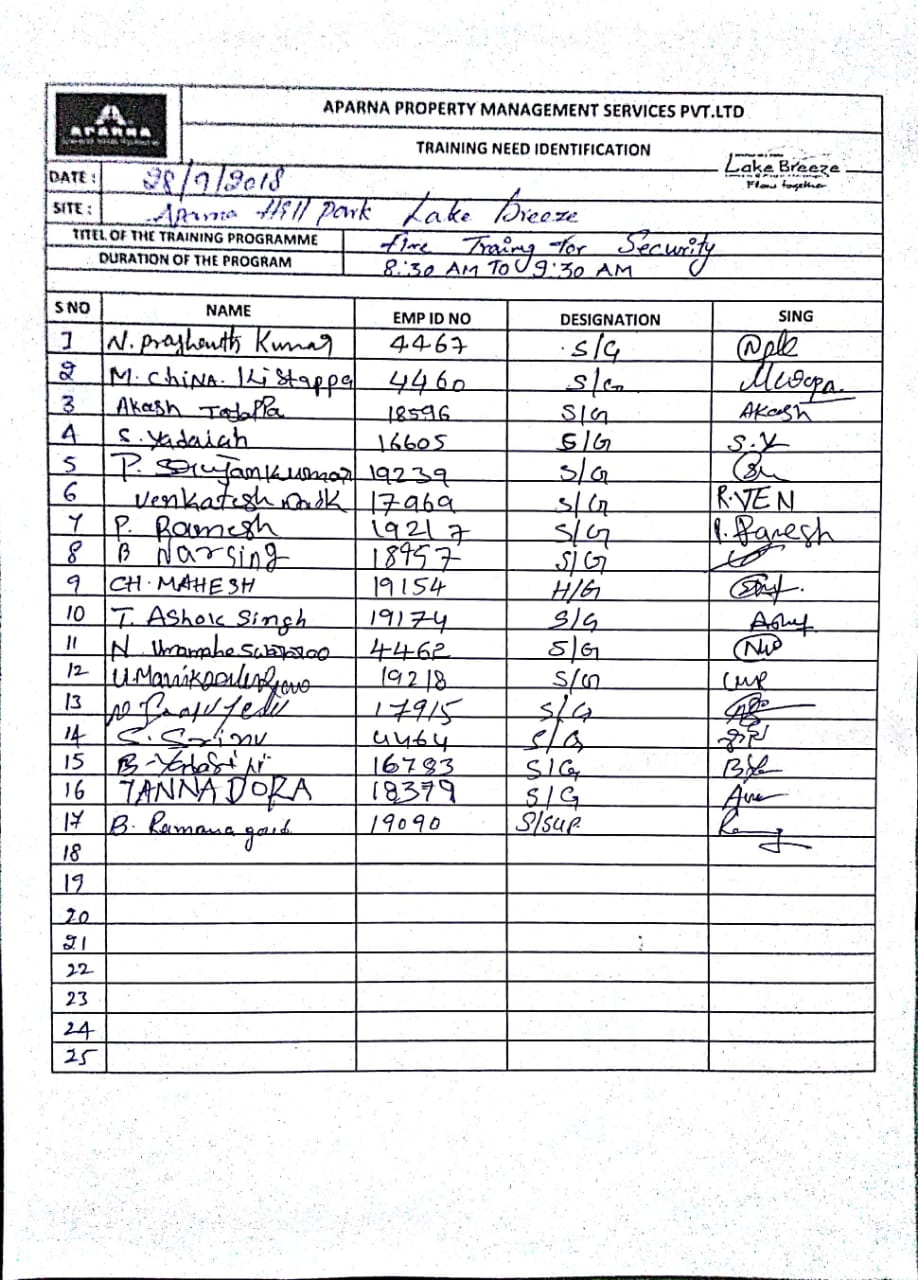 APARNA
APARNA PROPERTY MANAGEMENT SERVICES PVT.LTD
TRAINING NEED IDENTIFICATION
Lake Breeze
Flow together
DATE : 28/7/2018
SITE : Aparna Hill Park Lake Breeze
TITEL OF THE TRAINING PROGRAMME Fire Traing for Security
DURATION OF THE PROGRAM 8:30 AM TO 9:30 AM
S NO NAME EMP ID NO DESIGNATION SING
1 N. Prashanth Kumar 4467 S/G
2 M. CHINA. Kistappa 4460 S/G
3 Akash 18596 S/G Akash
4 S. Yadaiah 16605 S/G S.Y
5 P. Srujankumar 19239 S/G
6 Venkatesh naik 17969 S/G R.VEN
7 P. Ramesh 19217 S/G P. Ramesh
8 B Narsing 18957 S/G
9 CH. MAHESH 19154 H/G
10 T. Ashok Singh 19174 S/G
11 N. 4462 S/G
12 19218 S/G UMR
13 17915 S/G
14 S. Srinu 4464 S/G
15 B. 16783 S/G
16 TANNA DORA 18379 S/G
17 B. Ramana goud. 19090 S/SUP.
18
19
20
21
22
23
24
25